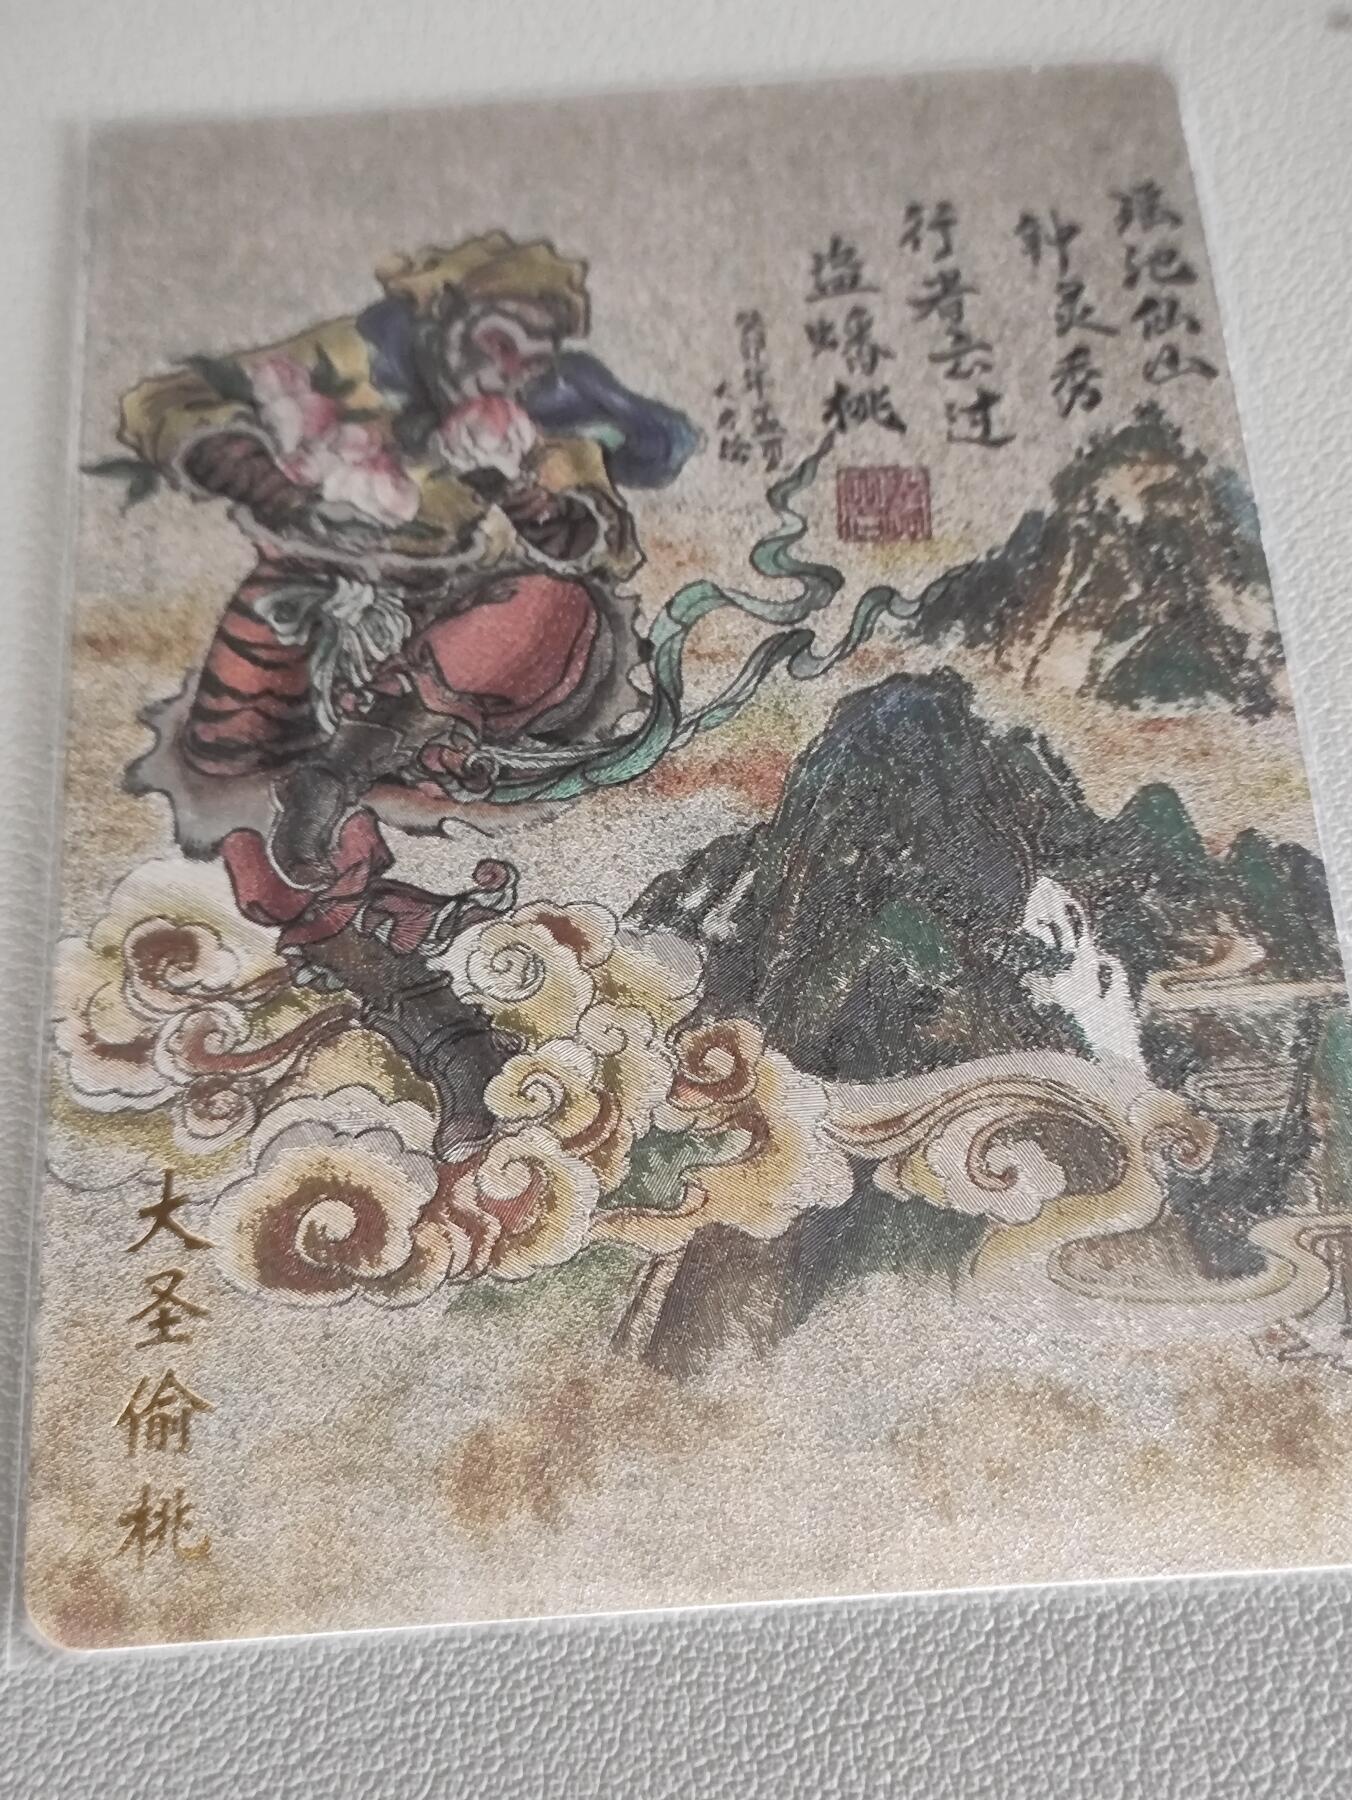 瑶池仙山
钟灵秀
行者云过
盗蟠桃
大圣偷桃